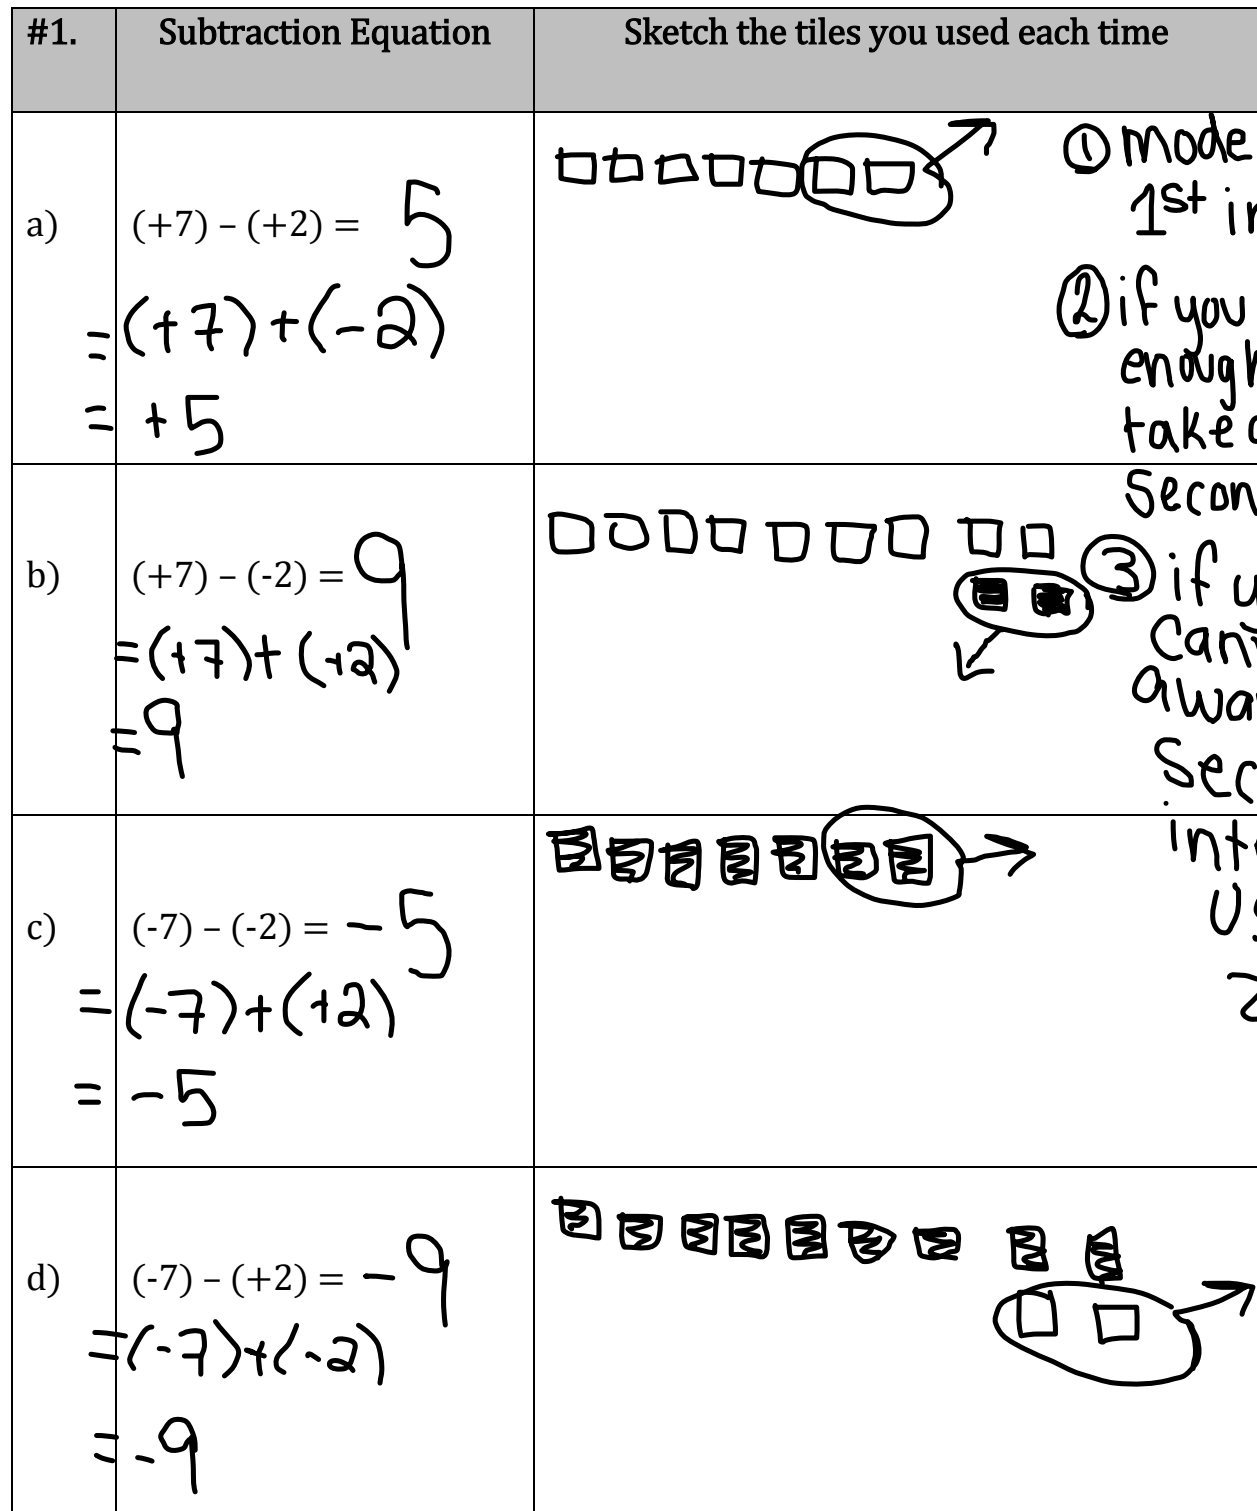 #1. Subtraction Equation Sketch the tiles you used each time
a) (+7) – (+2) = 5
= (+7) + (-2)
= +5
① mode
1st in
② if you
enough
take a
b) (+7) – (-2) = 9
= (+7) + (+2)
= 9
secon
③ if u
can't
awa
sec
c) (-7) – (-2) = -5
= (-7) + (+2)
= -5
inte
d) (-7) – (+2) = -9
= (-7) + (-2)
= -9